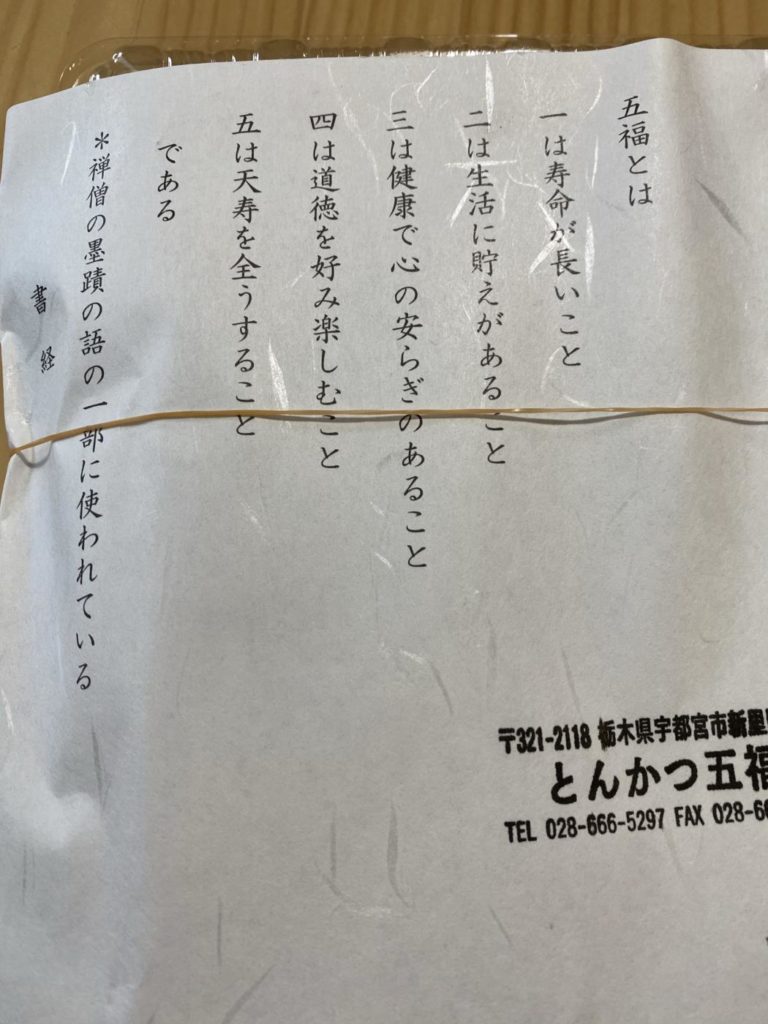 五福とは
一は寿命が長いこと
二は生活に貯えがあること
三は健康で心の安らぎのあること
四は道徳を好み楽しむこと
五は天寿を全うすること
である
＊禅僧の墨蹟の語の一部に使われている
書経
〒321-2118 栃木県宇都宮市新里
とんかつ五福
TEL 028-666-5297 FAX 028-66